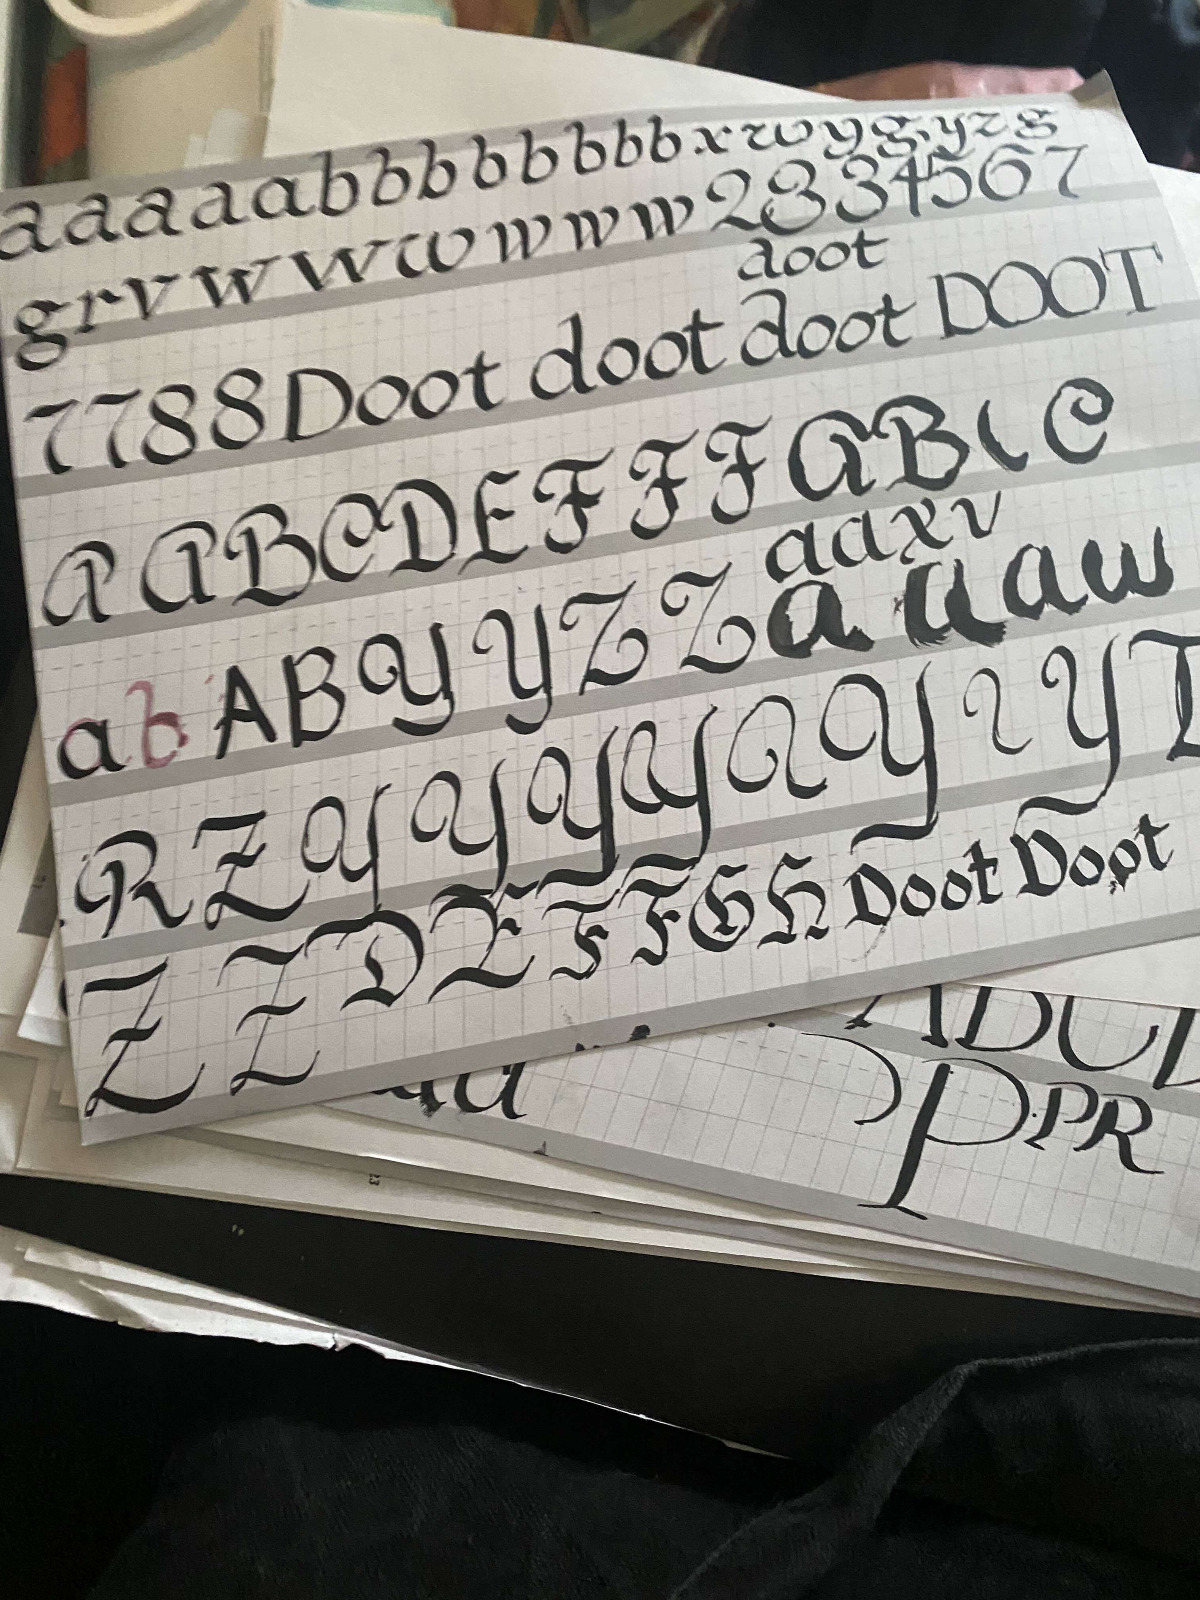 a a a a a b b b b b b b b x z w y g y z g
g r v w w w w w w 2 3 3 4 5 6 7
doot
7 7 8 8 Doot doot doot DOOT
A A B C D E F F F A B C
a a x v
a b A B Y Y Z Z a a a w
R Z Y Y Y Y Y Y
Z Z D E F F G H Doot Doot
A B C
P P R